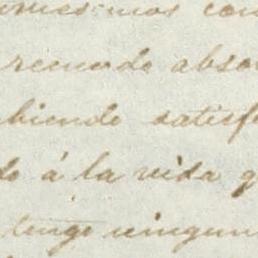 con
recuerdo abso
biendo satisf
do á la vida q
tengo ningun